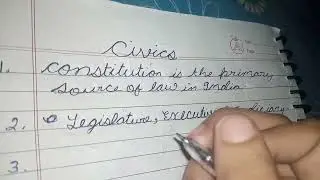 Civics
1. Constitution is the primary
source of law in India
2. Legislature, Executive
3.